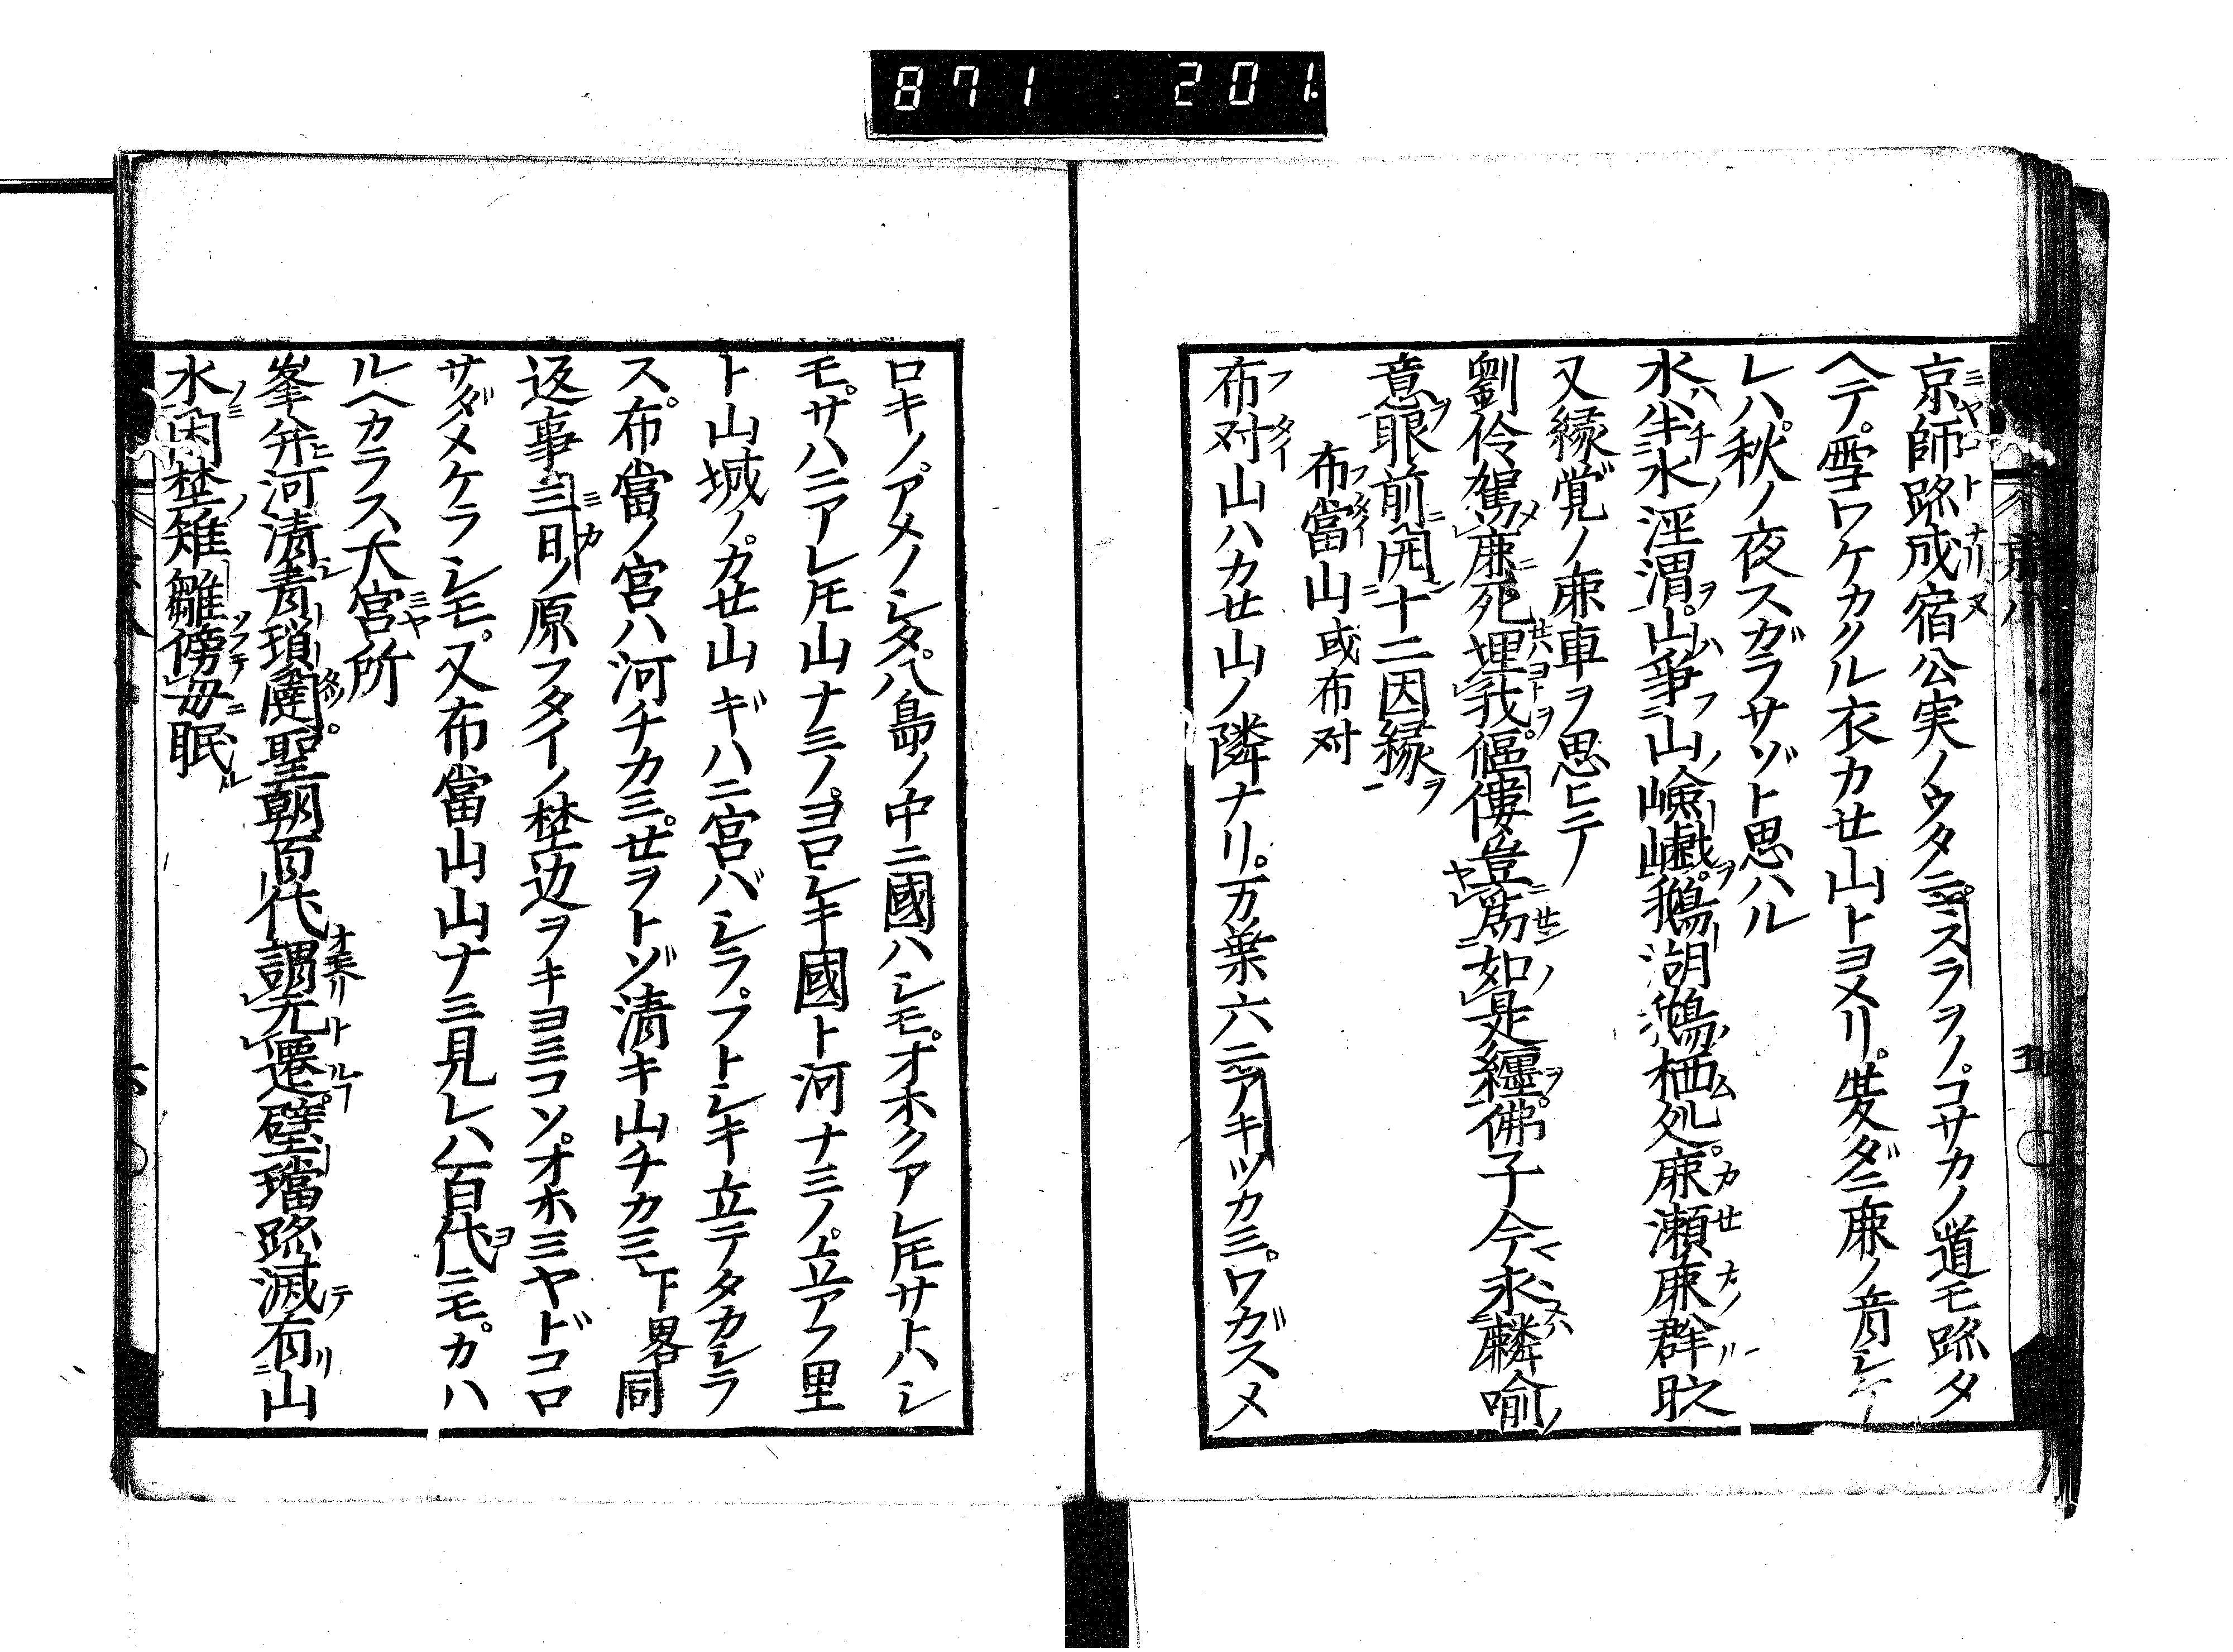 871 201
京師跡成宿公実ノウタニ。スラヲノ。コサカノ道モ跡タ
ヘテ。雪ワケカクル衣カセ山トヨメリ。裝ダニ鹿ノ音シケ
レハ。秋ノ夜スガラサゾト思ハル
水半水涇渭。山爭山嶮巇。鵝湖鵝栖処。鹿瀬鹿群時
又縁覚ノ鹿車ヲ思ヒテ
劉伶駕鹿死埋我。傴僂豈為如是纏。佛子今永麟喩
意眼前開十二因縁
布當山或布対
布対山ハカセ山ノ隣ナリ。万葉六ニアキツカミ。ワガスメ
ロキノ。アメノシタ。八島ノ中ニ國ハシモ。オホクアレ𪜈サトハシ
モ。サハニアレ𪜈山ナミノ。ヨロシキ國ト河ナミノ。立アフ里
ト山城ノ。カセ山ギハニ宮バシラ。フトシキ立テタカシラ
ス。布當ノ宮ハ河チカミ。セヲトゾ清キ山チカミ下畧同
返事三日ノ原フタイノ埜辺ヲキヨミコソ。オホミヤドコロ
サダメケラシモ。又布當山山ナミ見レハ百代ニモ。カハ
ルヘカラス大宮所
峯并河清青瑣闥。聖朝百代謂无遷。璧璫跡滅有山
水閑埜雉雛傍母眠